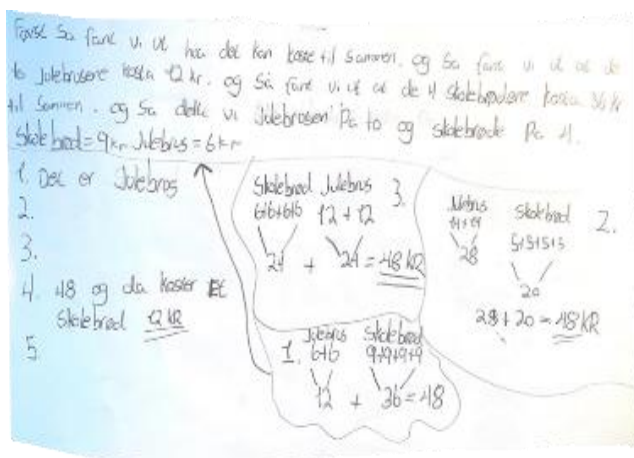 Først så fant vi ut hva det kan koste til sammen. og så fant vi ut at de
to Julebrusene kosta 12 kr. og så fant vi ut at de 4 skolebrødene kosta 36 kr
til sammen. og så delte vi Julebrusen På to og skolebrøde På 4.
Skolebrød = 9 kr Julebrus = 6 kr
1. Det er Julebrus
2.
3.
4. 48 og da koster Et
Skolebrød 12 KR
5.
Skolebrød Julebrus 3.
6+6+6+6 12+12
24 + 24 = 48 KR
Julebrus Skolebrød 2.
14+14 5+5+5+5
28 20
28+20=48 KR
Julebrus Skolebrød
1. 6+6 9+9+9+9
12 + 36 = 48